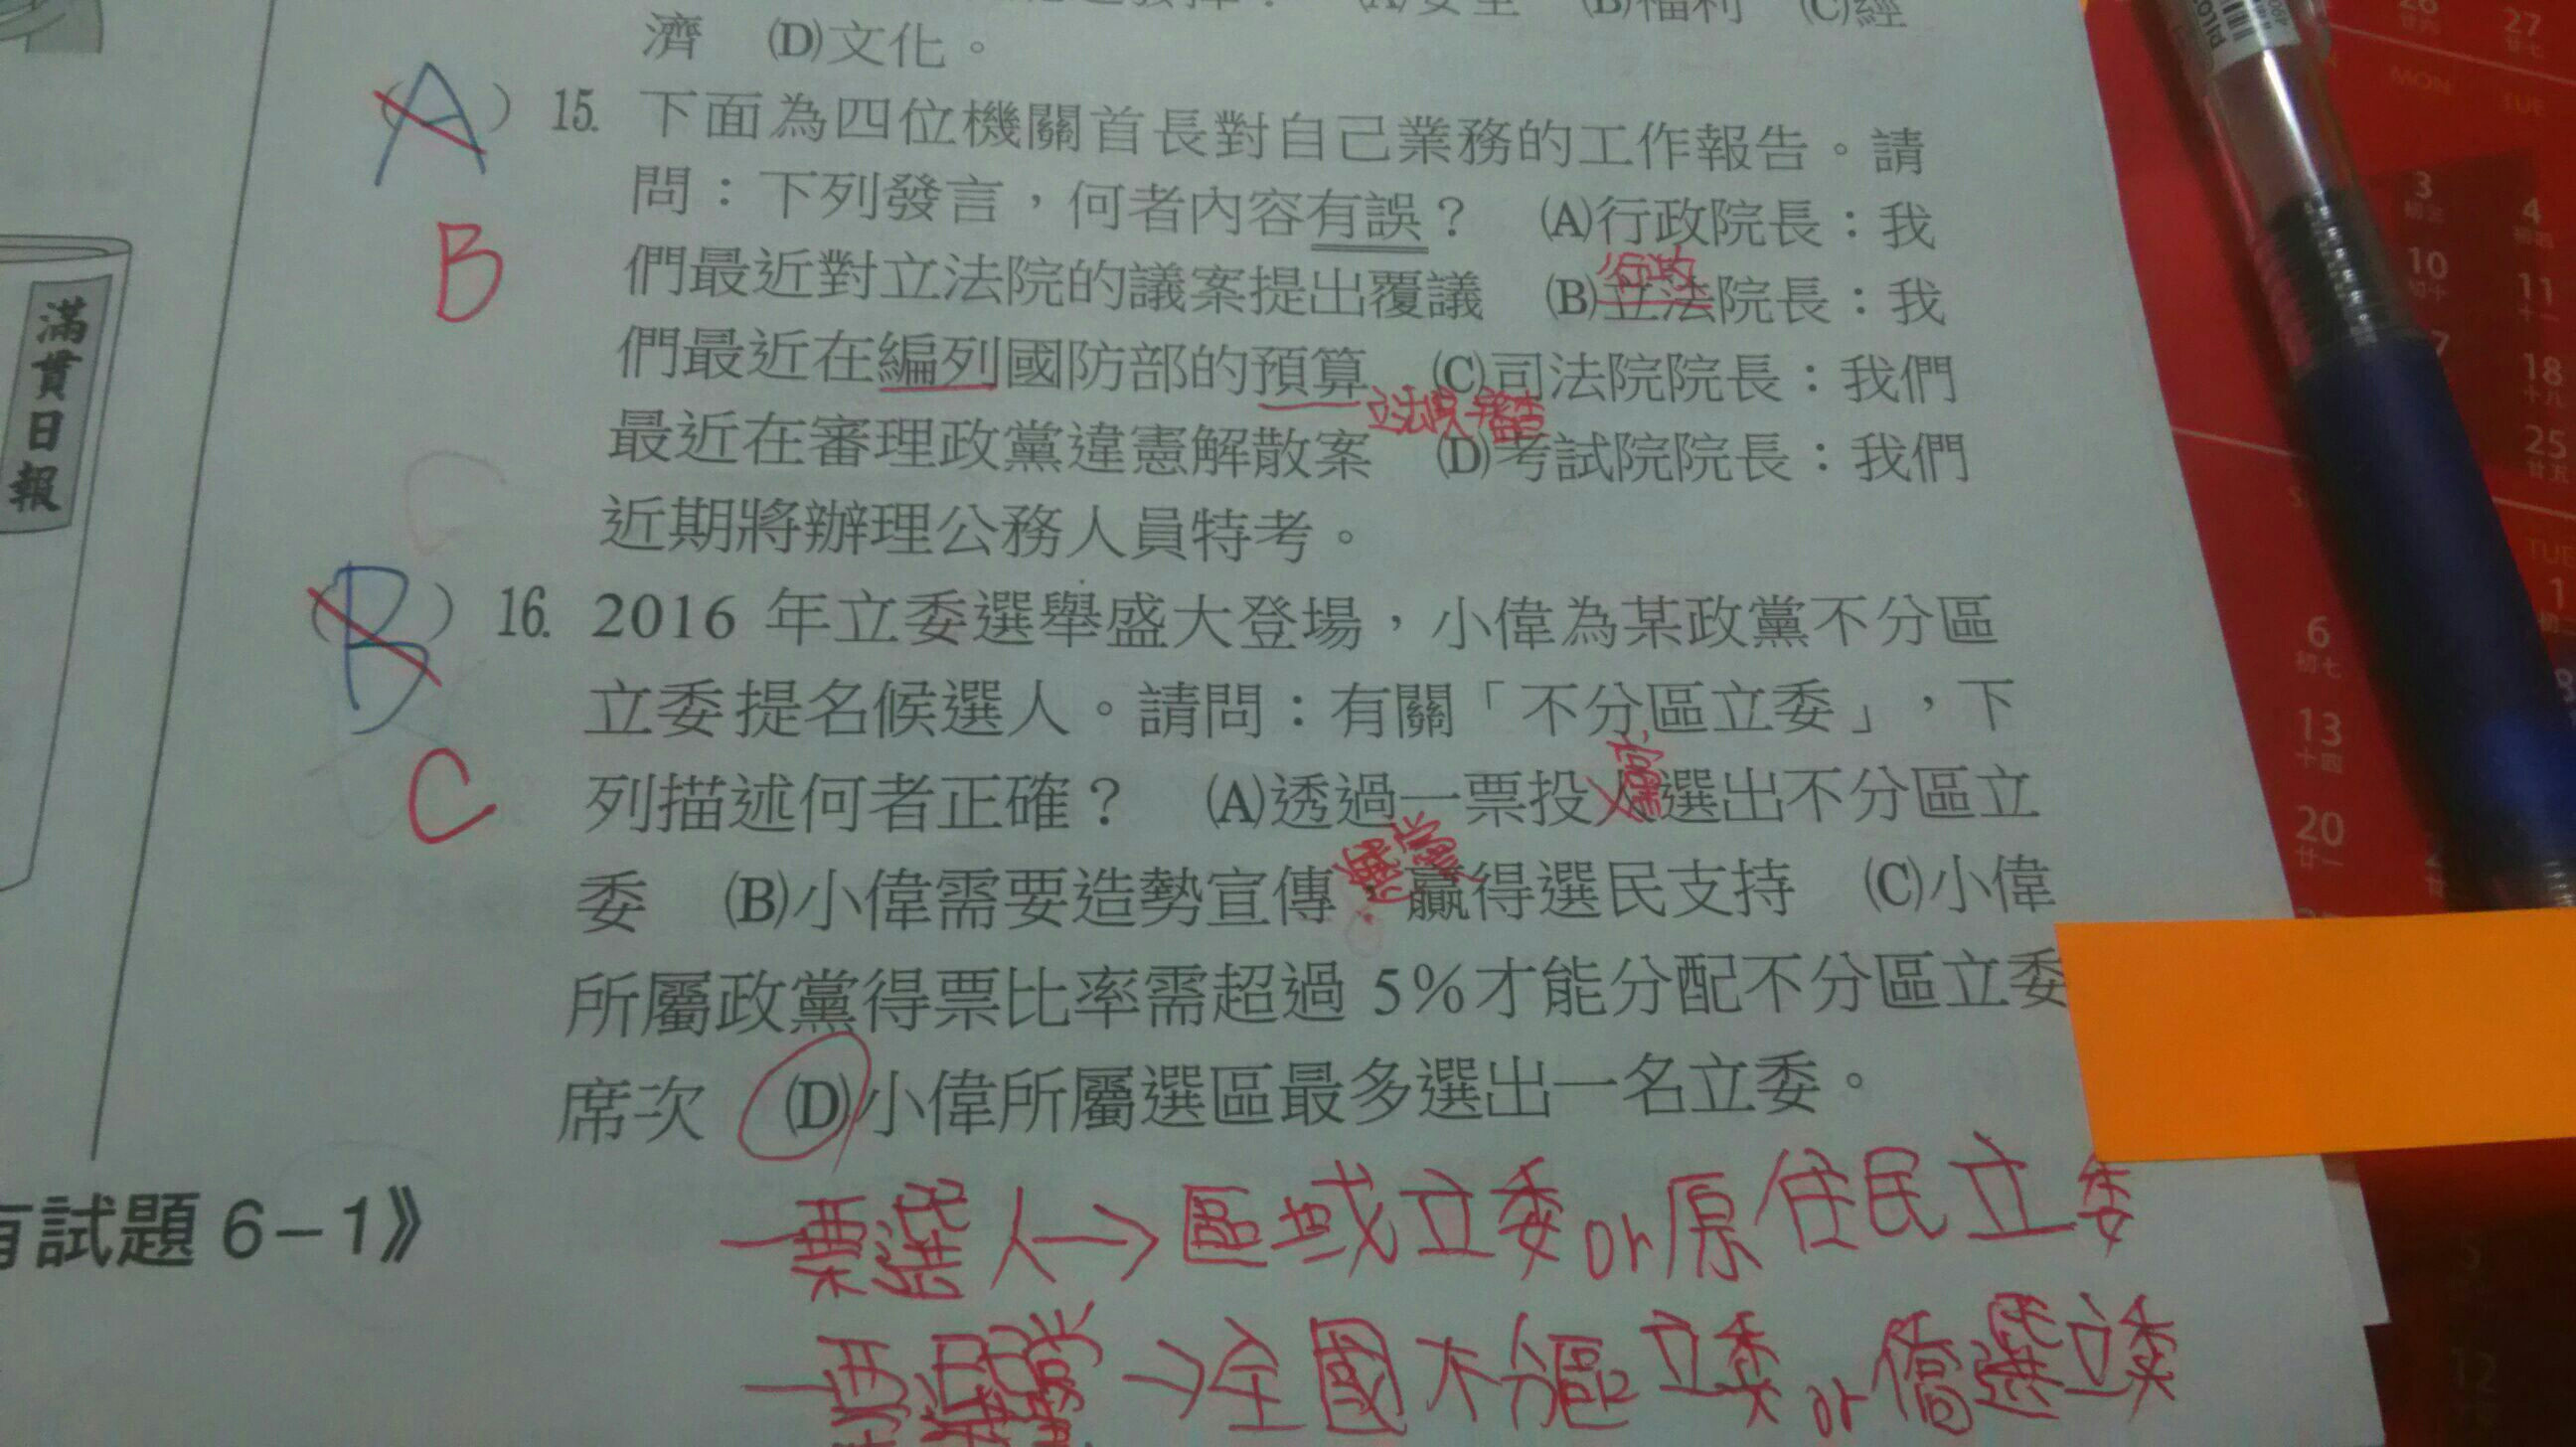 濟 (D)文化。
(A) 15. 下面為四位機關首長對自己業務的工作報告。請
問：下列發言，何者內容有誤？ (A)行政院長：我
B
行政
們最近對立法院的議案提出覆議 (B)立法院長：我
們最近在編列國防部的預算 (C)司法院院長：我們
立法院審
最近在審理政黨違憲解散案 (D)考試院院長：我們
近期將辦理公務人員特考。
(B) 16. 2016 年立委選舉盛大登場，小偉為某政黨不分區
立委提名候選人。請問：有關「不分區立委」，下
黨
列描述何者正確？ (A)透過一票投人選出不分區立
C
委 (B)小偉需要造勢宣傳，贏得選民支持 (C)小偉
所屬政黨得票比率需超過 5%才能分配不分區立委
席次 (D)小偉所屬選區最多選出一名立委。
一票選人→區域立委or原住民立委
一票選黨→全國不分區立委or僑選立委
試題 6－1》
滿貫日報
PILOT
MON TUE
26 27
3 4
10 11
18
25
6
13
20